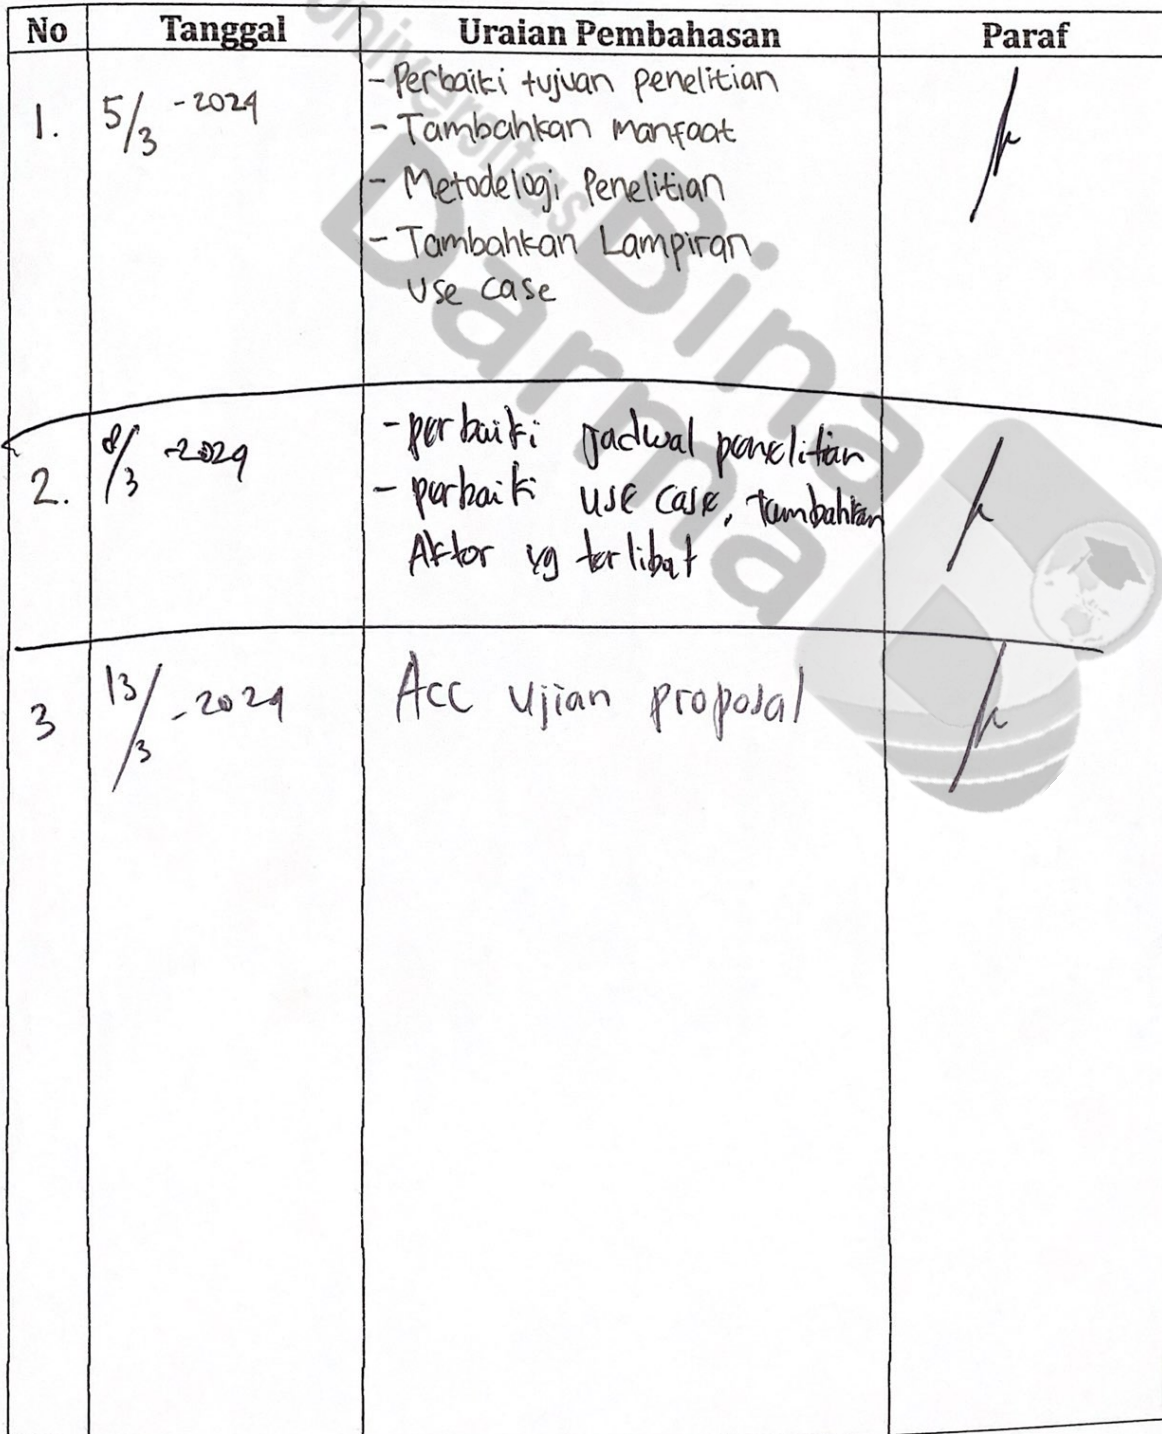 No Tanggal Uraian Pembahasan Paraf
1. 5/3 - 2024 - Perbaiki tujuan penelitian
- Tambahkan Manfaat
- Metodelogi Penelitian
- Tambahkan Lampiran
Use case
2. 8/3 - 2024 - perbaiki jadwal penelitian
- perbaiki use case, tambahkan
Aktor yg terlibat
3 13/3 - 2024 Acc ujian proposal
Universitas
Bina
Darma